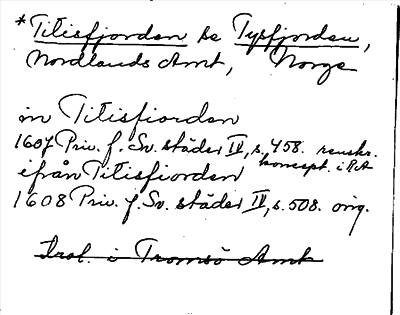 *Titisfjorden se Tysfjorden,
Nordlands Amt, Norge
in Titisfiorden
1607 Priv. f. Sv. städer IV, s. 458. renskr.
koncept. i RA
ifrån Titisfiorden
1608 Priv. f. Sv. städer IV, s. 508. orig.
Trol. i Tromsö Amt